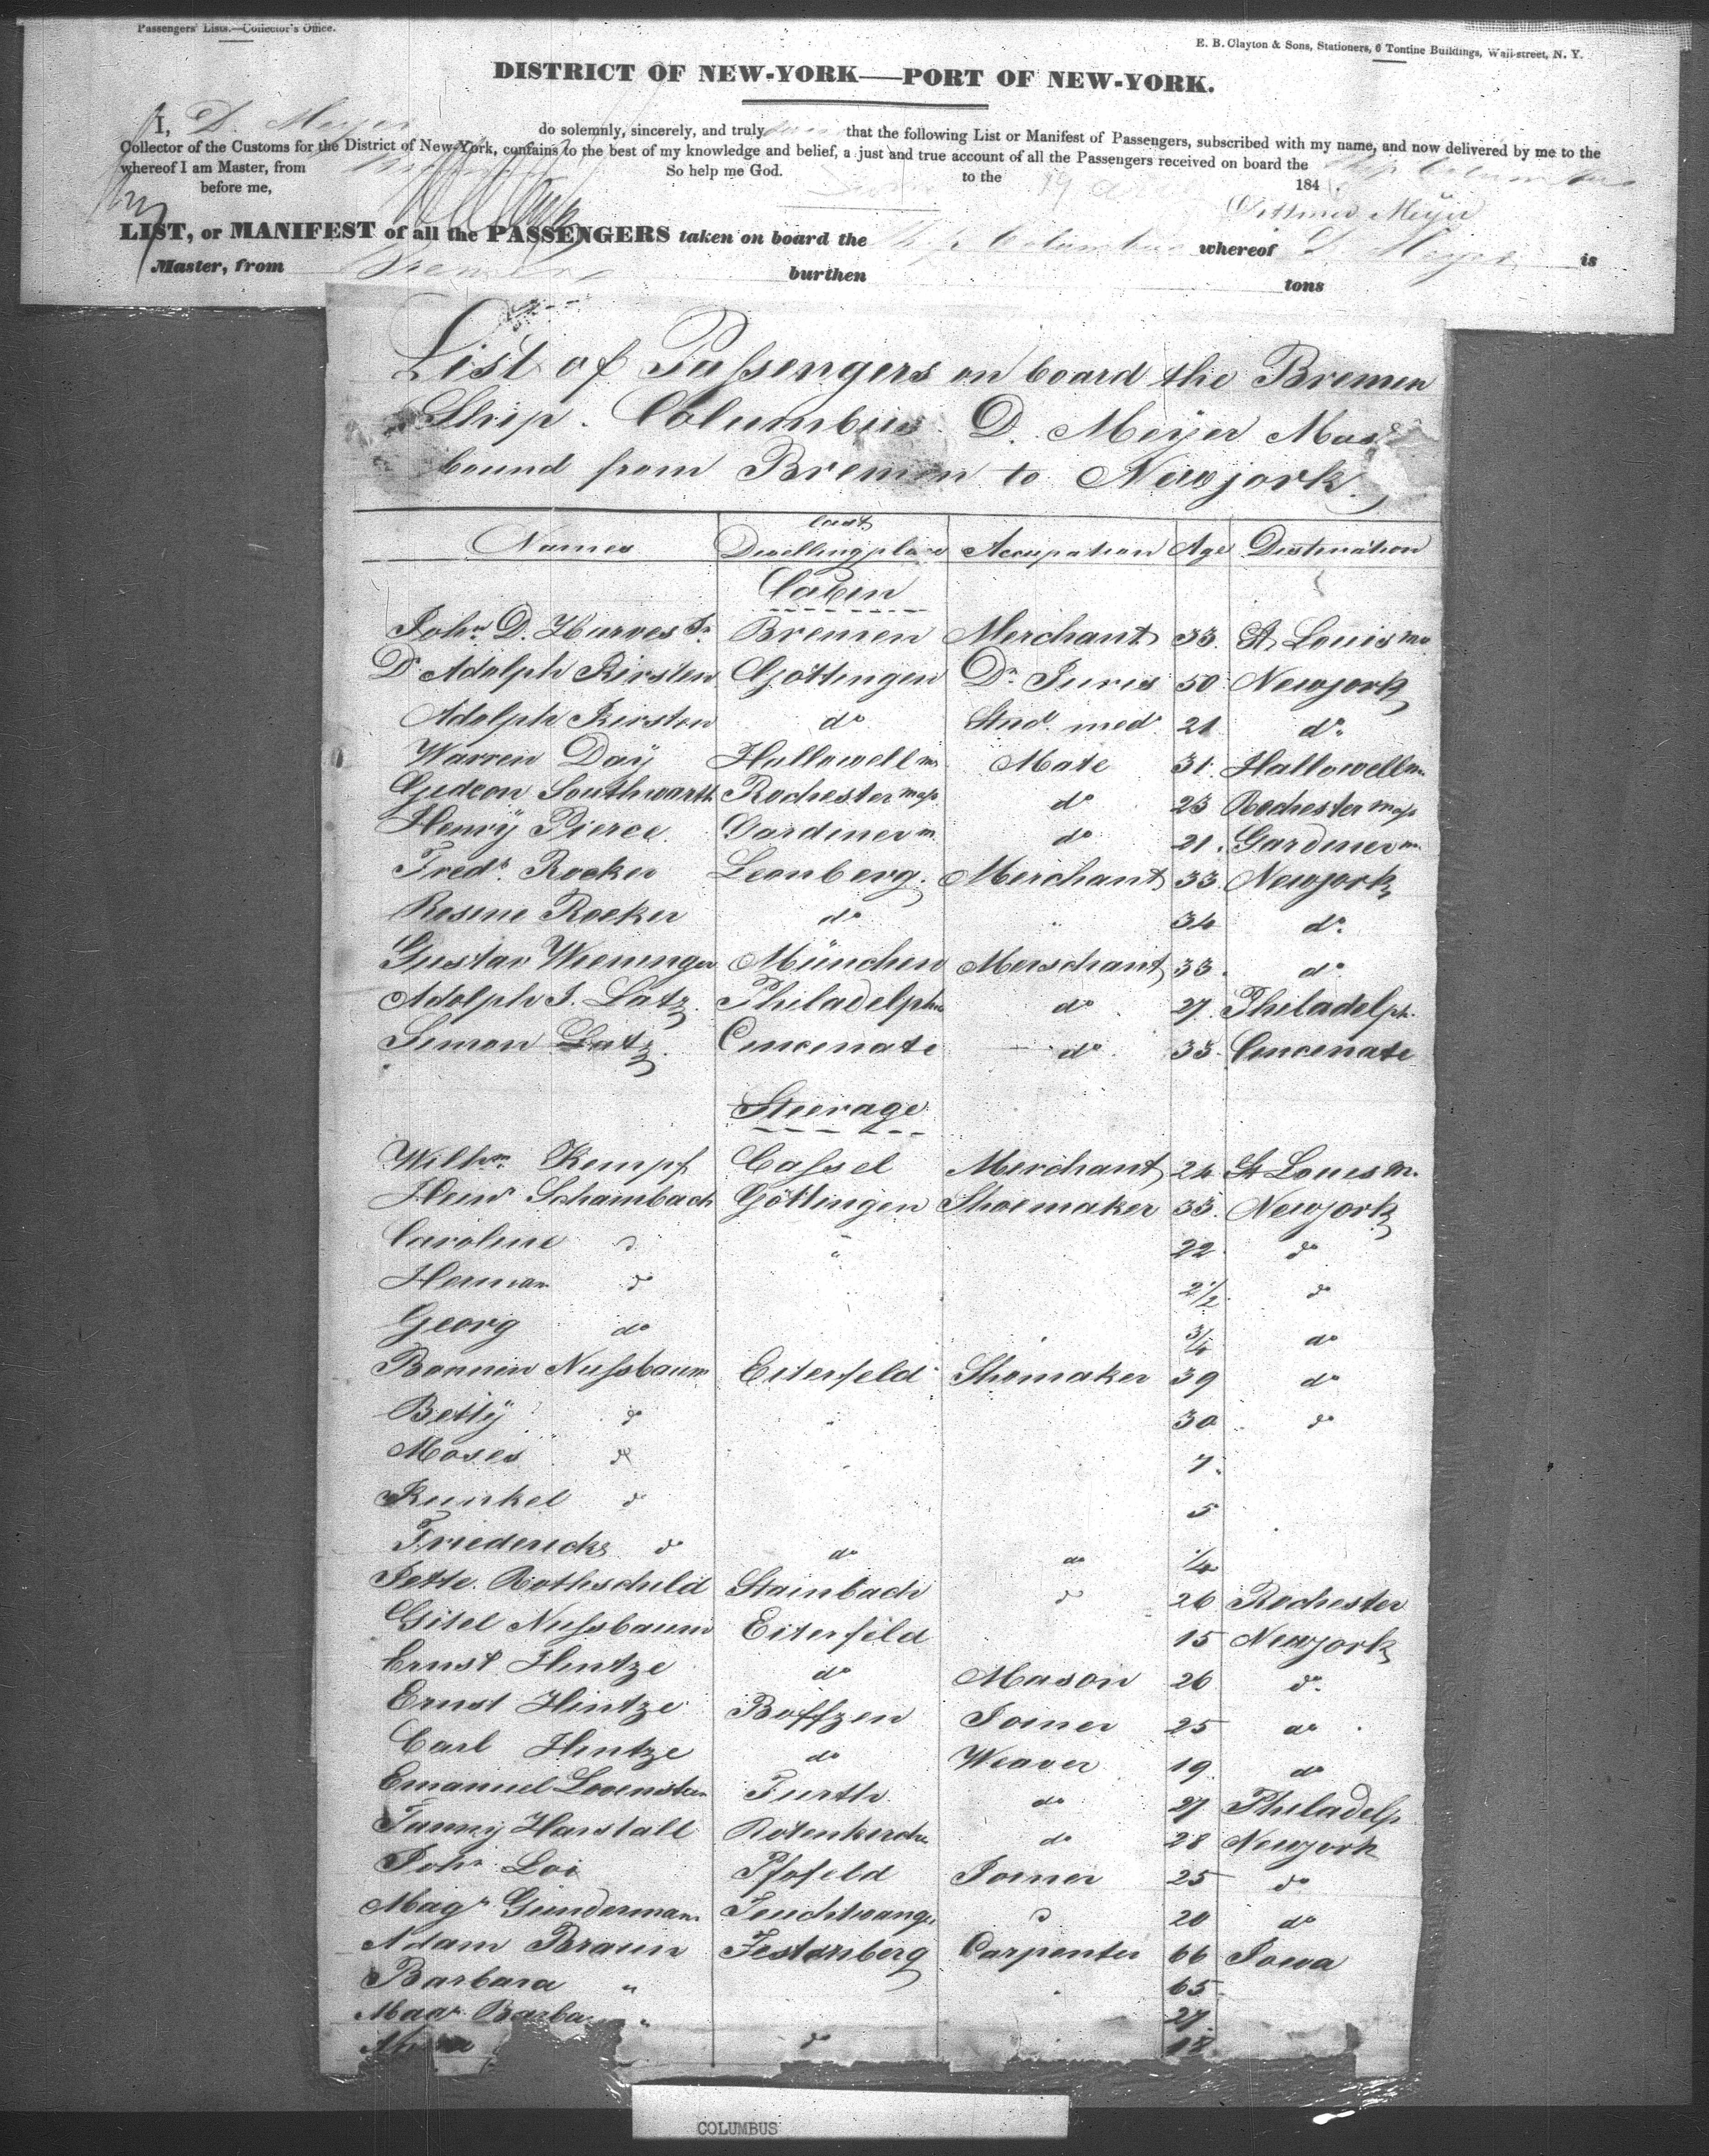 Passengers' Lists.—Collector's Office.
E. B. Clayton & Sons, Stationers, 6 Tontine Buildings, Wall-street, N. Y.
DISTRICT OF NEW-YORK—PORT OF NEW-YORK.
I, D. Meyer do solemnly, sincerely, and truly that the following List or Manifest of Passengers, subscribed with my name, and now delivered by me to the
Collector of the Customs for the District of New-York, contains to the best of my knowledge and belief, a just and true account of all the Passengers received on board the Ship Columbus
whereof I am Master, from So help me God.
to the 184
before me, Meyer
LIST, or MANIFEST of all the PASSENGERS taken on board the Ship Columbus whereof D. Meyer is
Master, from Bremen burthen tons
List of Passengers on board the Bremen
Ship. Columbus. D. Meijer Mast
bound from Bremen to Newjork.
Names last Dwellingplace Accupation Age Destination
Cabin
John D. Hurves Jr. Bremen Merchant 33. St Louis mo
Dr Adolph Kirsten Göttingen Dr. Juris 50 Newjork
Adolph Kirsten do Stud. med. 21 do.
Warren Daÿ Hallowell Mate 31. Hallowell
Gedeon Southwarth Rochester mass do 23 Rochester mass
Henrÿ Pierce Gardiner m do 21. Gardiner m.
Fredr. Rocker Leonberg. Merchant 33. Newjork
Rosine Rocker do 34 do.
Gustav Wieninger München Merschant 33. do
Adolph J. Latz. Philadelphia do 27. Philadelph.
Simon Latz. Cincenate do. 33. Cincenate
Steerage
Wilhm. Kempf Cassel Merchant 24 St Louis m.
Heinr Schambach Göttingen Shoemaker 33. Newjork
Caroline do " 22 do
Herman do 2 1/2 do
Georg do 3/4 do
Nussbaum Eiterfeld Shomaker 39 do
Bettÿ do " 30 do
Moses do 7.
Kunkel do 5
Friedericke do do do 1/4
Jette. Rothschild Stainbach do 26 Rochester
Gitel Nussbaum Eiterfeld 15 Newjork
Ernst Hintze do Mason 26 do.
Ernst Hintze Boffzen Joiner 25 do
Carl Hintze do Weaver 19 do
Emanuel Lovenstein Furth. do 27 Philadelp
Fanny Rotenkirche do 28 Newjork
Johs Loi Pfofeld Joiner 25 do
Magr Gunderman Feuchtwange do 20 do
Adam Braun Festenberg Carpenter 66 Iowa
Barbara " 65
Magr Barba " 27.
do 18.
COLUMBUS